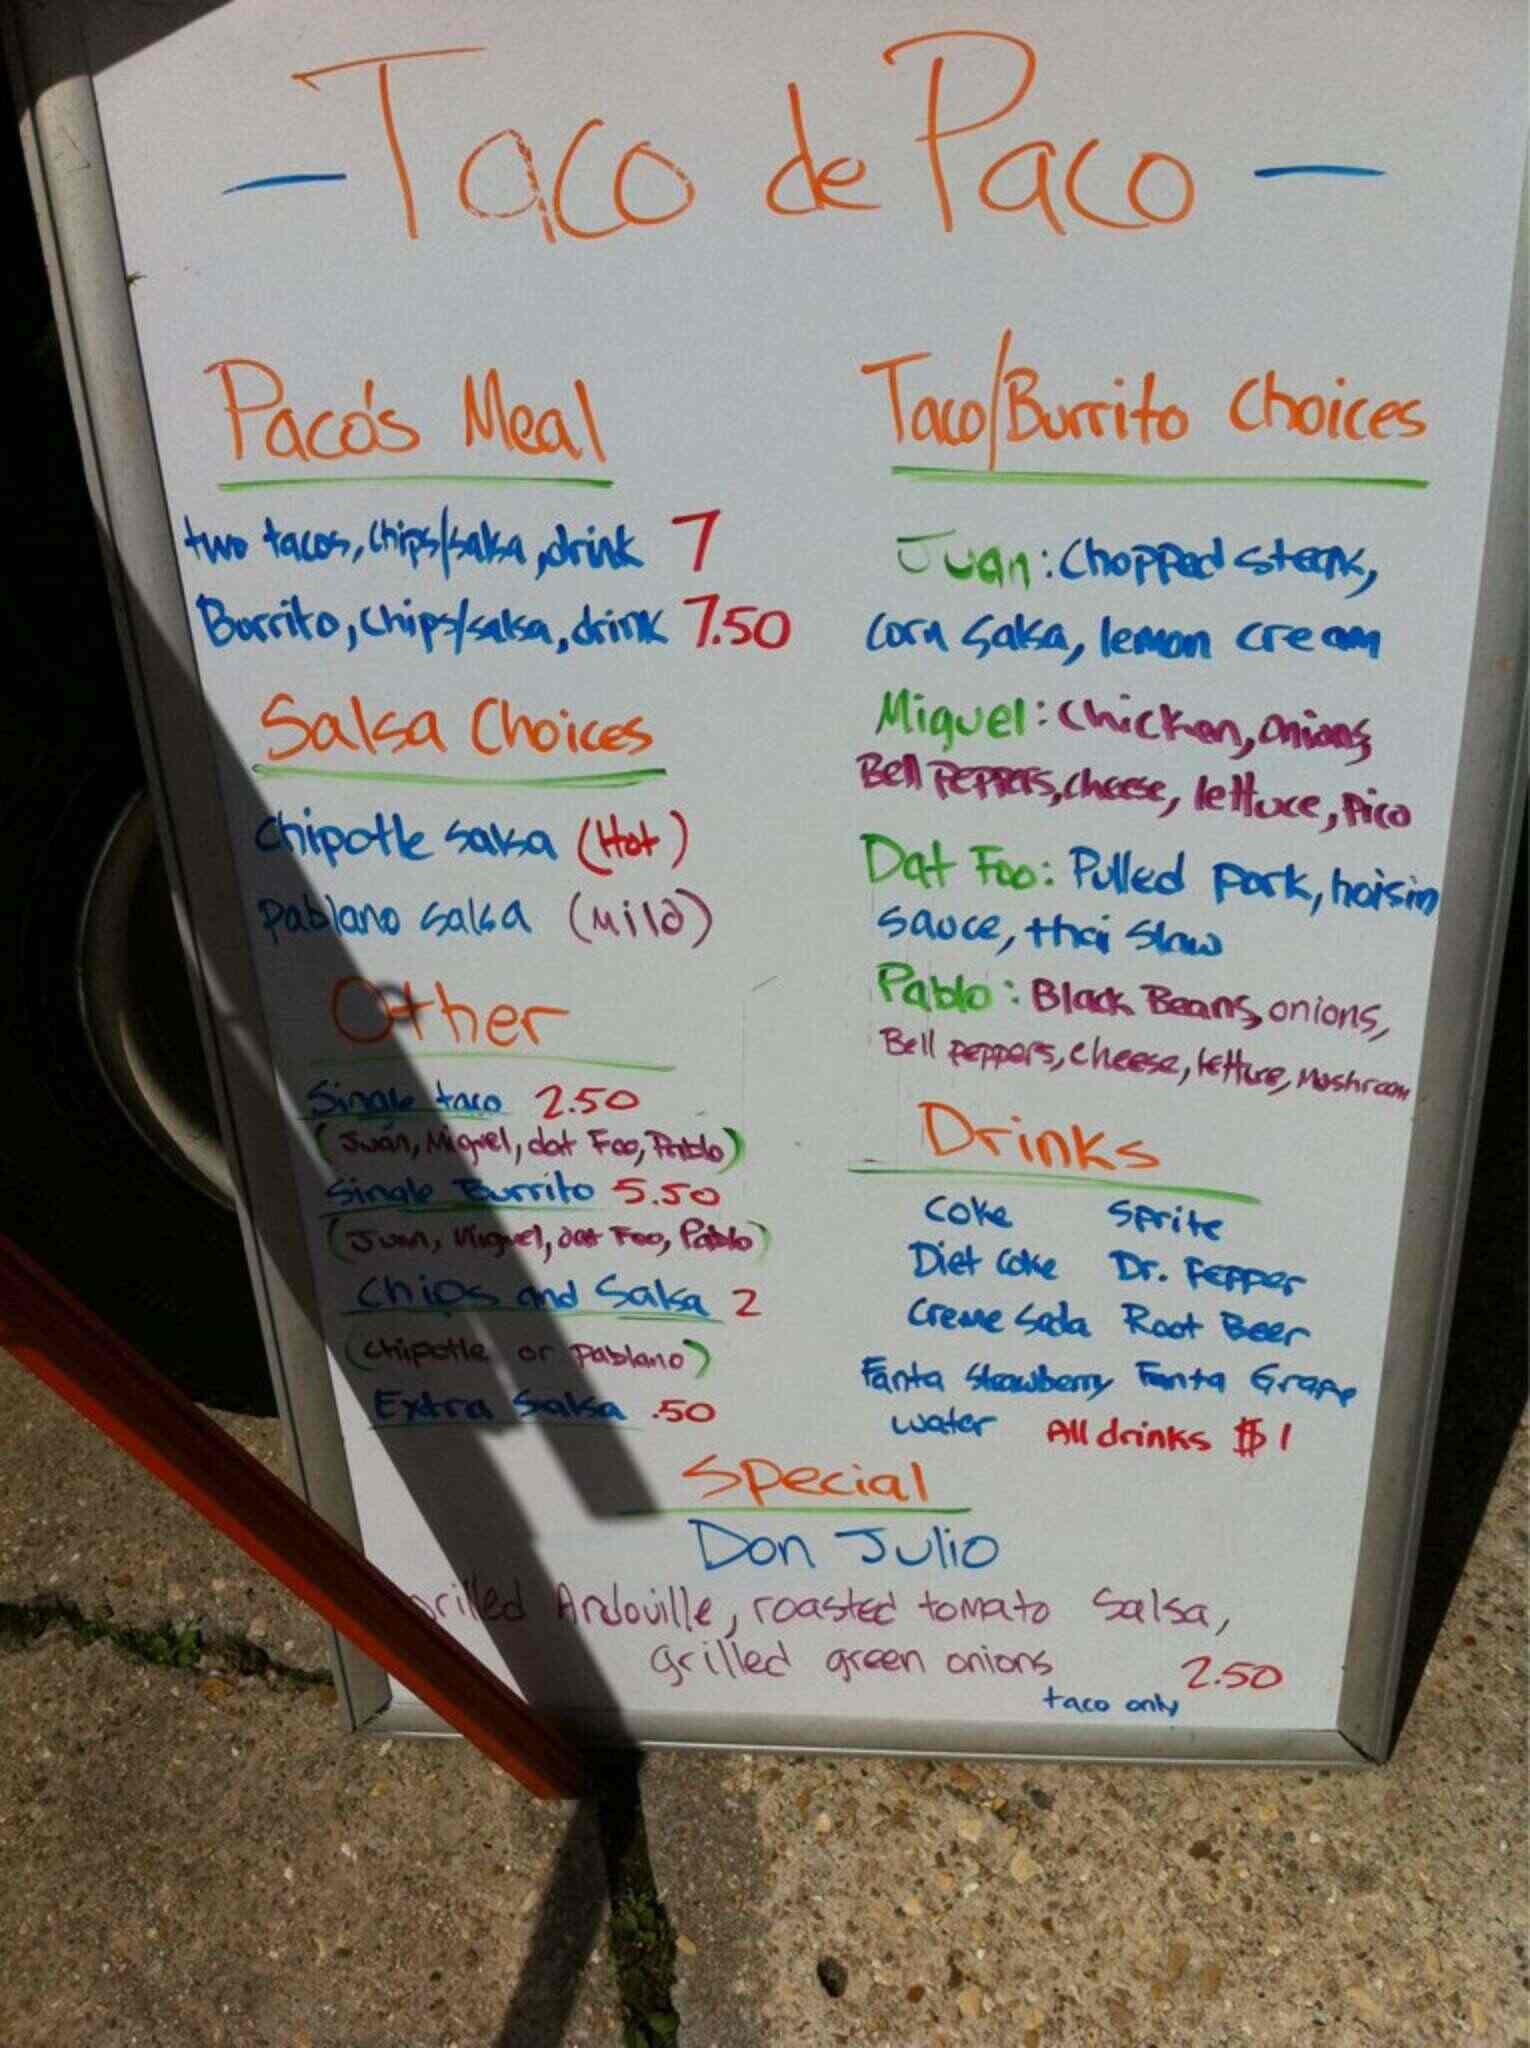 - Taco de Paco -
Paco's Meal
two tacos, chips/salsa, drink 7
Burrito, chips/salsa, drink 7.50
Salsa Choices
Chipotle salsa (Hot)
pablano salsa (Mild)
Other
Single taco 2.50
(Juan, Miguel, dat Foo, Pablo)
Single Burrito 5.50
(Juan, Miguel, dat Foo, Pablo)
Chips and Salsa 2
(chipotle or pablano)
Extra Salsa .50
Taco/Burrito Choices
Juan: Chopped steak,
corn salsa, lemon cream
Miguel: Chicken, onions,
Bell peppers, cheese, lettuce, pico
Dat Foo: Pulled pork, hoisin
sauce, thai slaw
Pablo: Black Beans, onions,
Bell peppers, cheese, lettuce, mushroom
Drinks
Coke Sprite
Diet Coke Dr. Pepper
Creme Soda Root Beer
Fanta Strawberry Fanta Grape
water All drinks $1
Special
Don Julio
grilled Andouille, roasted tomato salsa,
grilled green onions 2.50
taco only